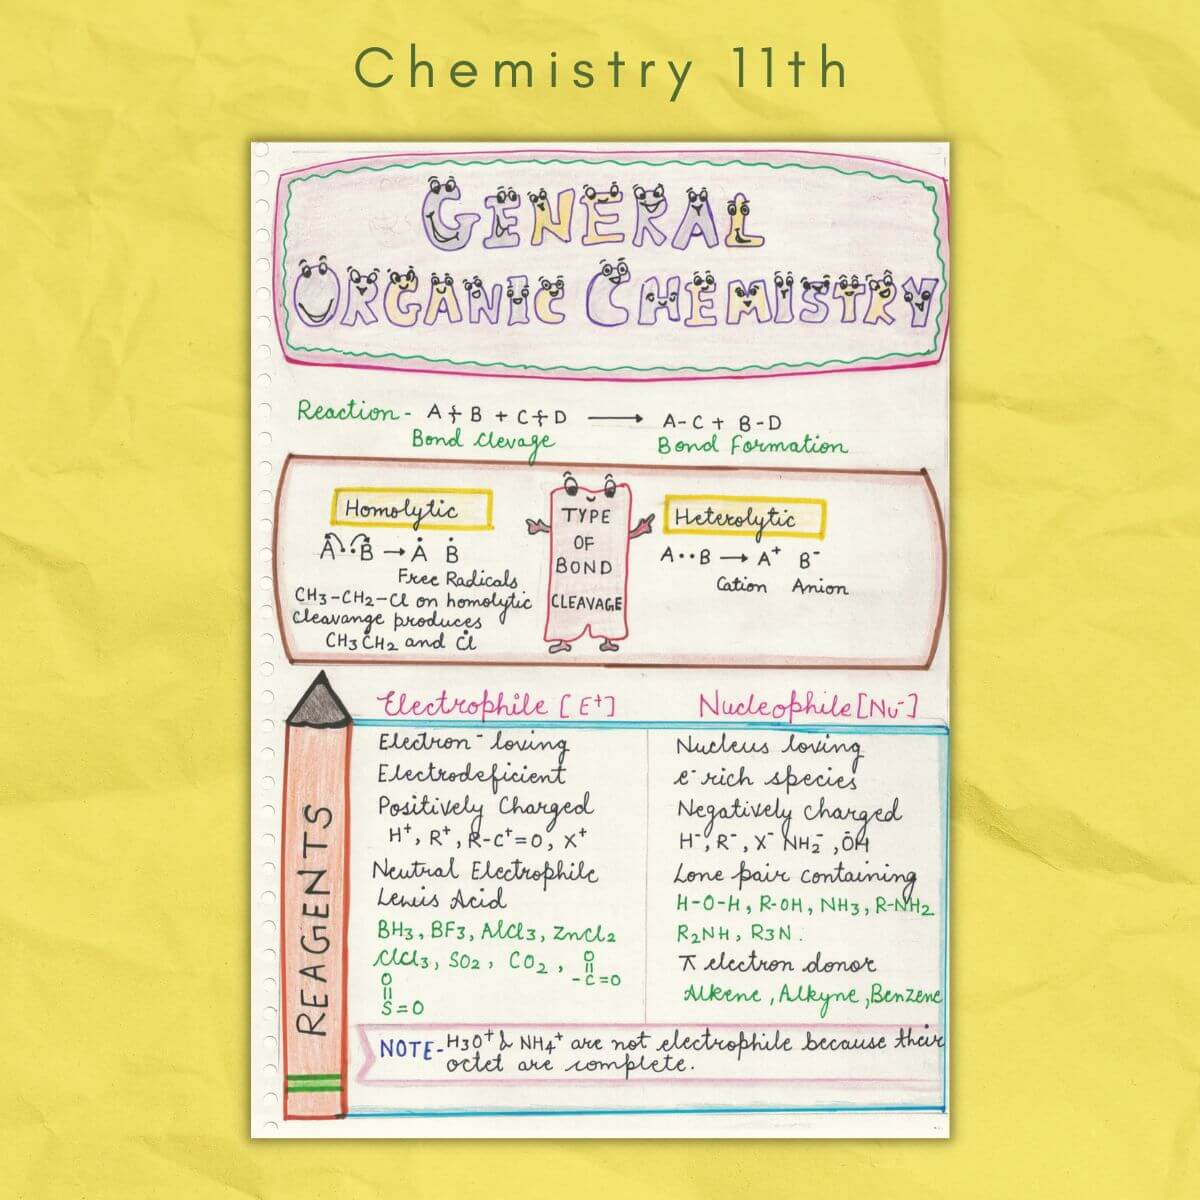 Chemistry 11th
GENERAL
ORGANIC CHEMISTRY
Reaction - A+B + C+D ⟶ A-C + B-D
Bond Clevage Bond Formation
Homolytic
A··B → Ȧ Ḃ
Free Radicals
CH3-CH2-Cl on homolytic
Cleavange produces
CH3ĊH2 and Ċl
TYPE
OF
BOND
CLEAVAGE
Heterolytic
A··B ⟶ A⁺ B⁻
Cation Anion
REAGENTS
Electrophile [E⁺]
Electron⁻ loving
Electrodeficient
Positively Charged
H⁺, R⁺, R-C⁺=O, X⁺
Neutral Electrophile
Lewis Acid
BH3, BF3, AlCl3, ZnCl2
ClCl3, SO2, CO2, O
=
-C=O
O
=
S=O
Nucleophile [Nu⁻]
Nucleus loving
e⁻ rich species
Negatively charged
H⁻, R⁻, X⁻ NH2⁻, ŌH
Lone pair containing
H-O-H, R-OH, NH3, R-NH2
R2NH, R3N.
π electron donor
Alkene, Alkyne, Benzene
NOTE- H3O⁺ & NH4⁺ are not electrophile because their
octet are complete.